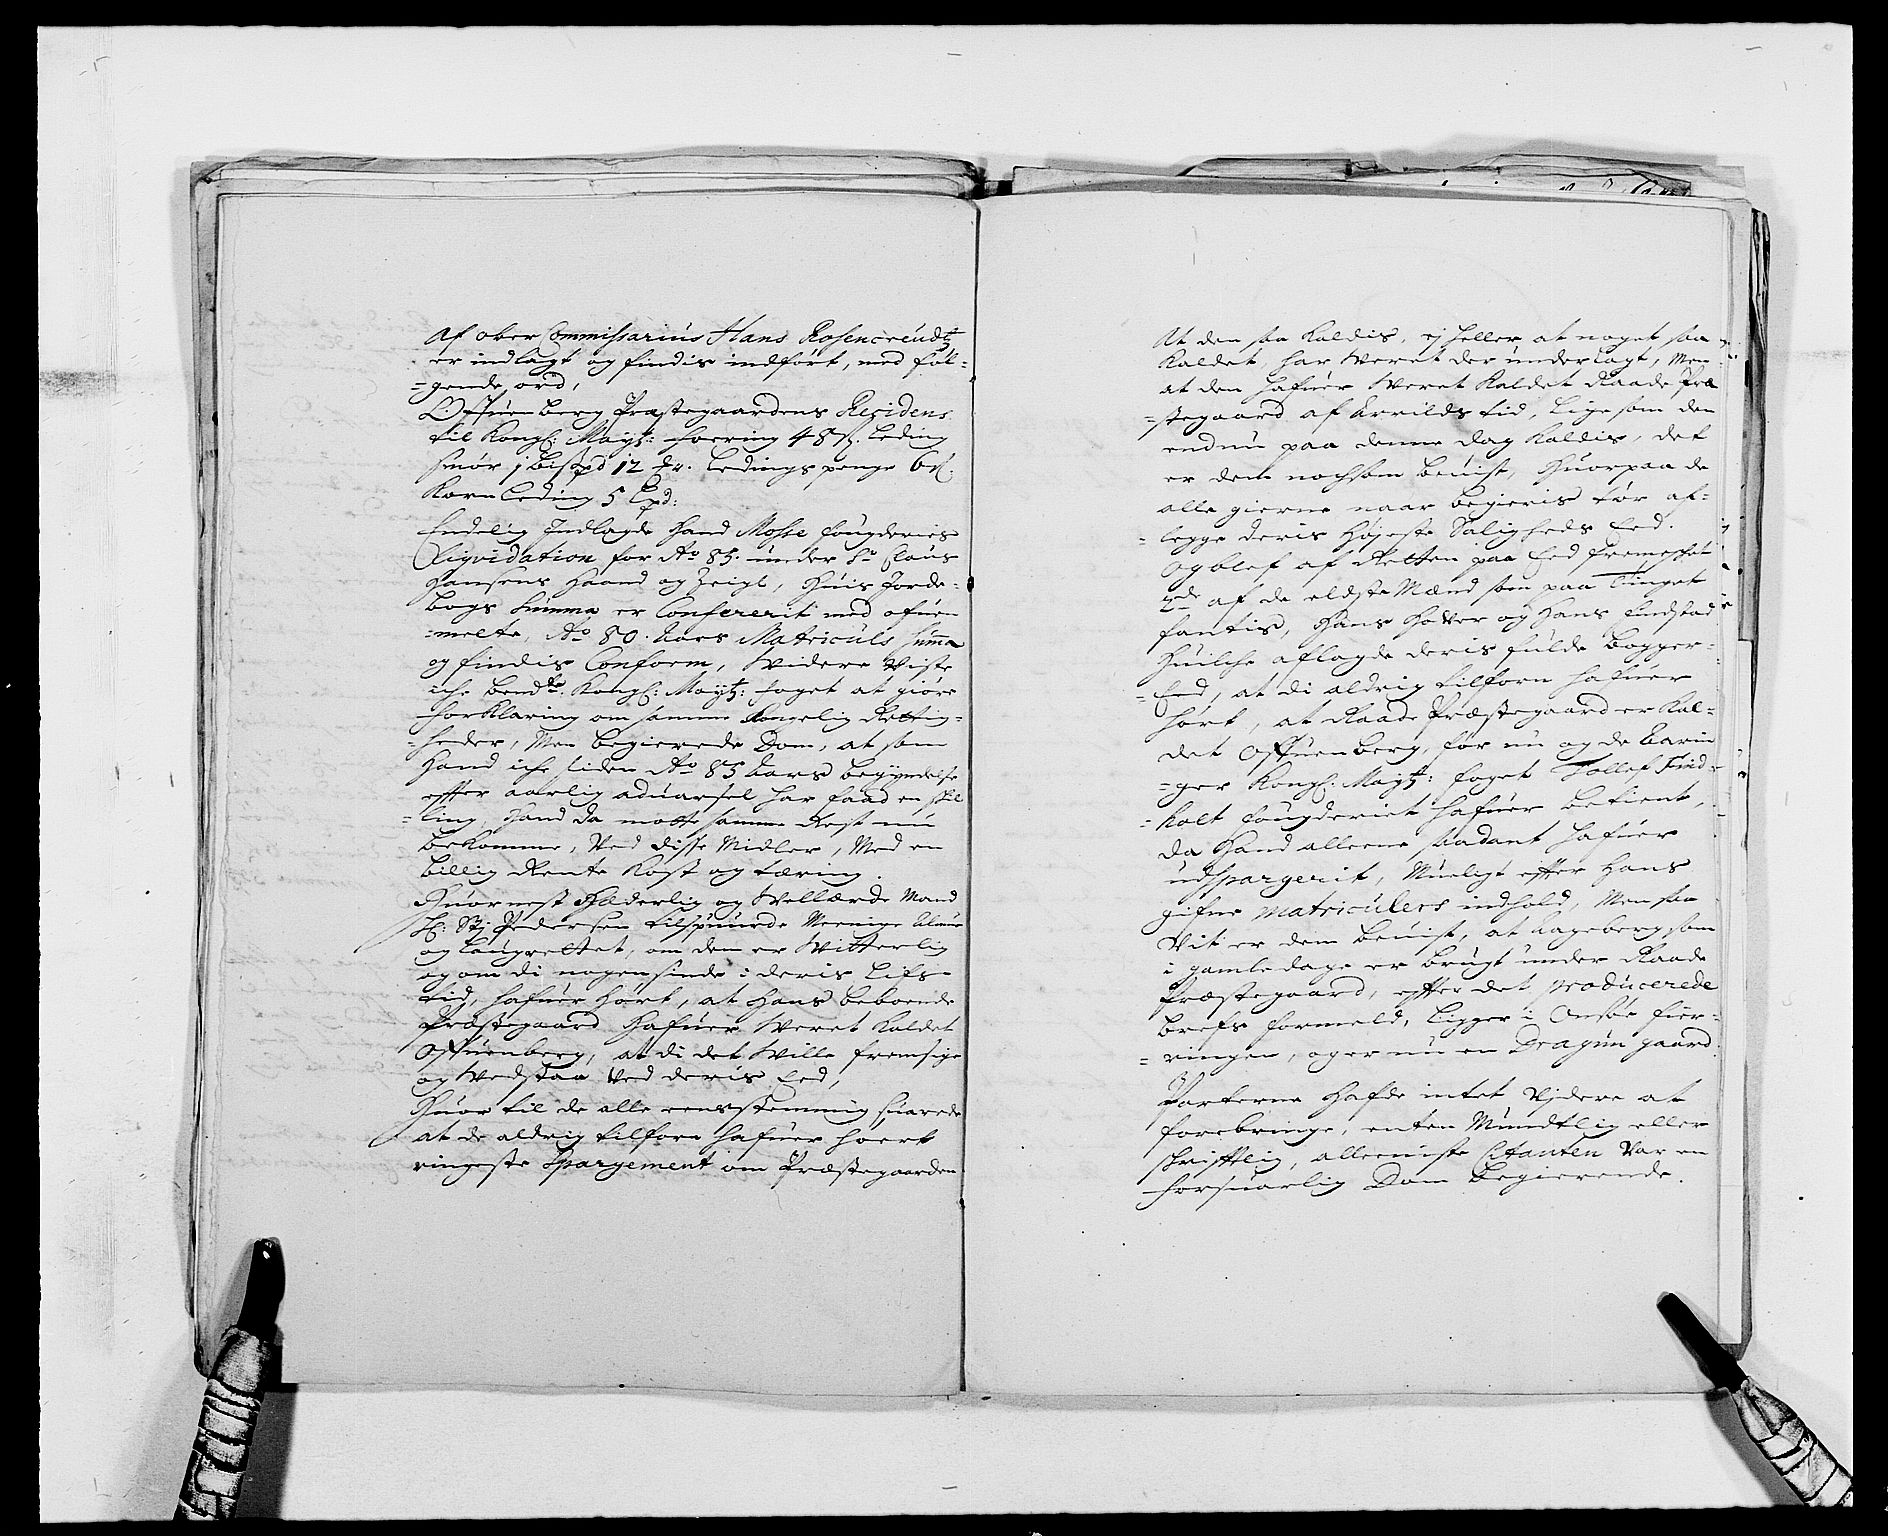 Af ober Commissarius Hans Rosencreudtz
er indlagt og findis indført, med føl-
=gende ord,
Offuenberg Præstegaardens Residens
til Kongl: Mayt: foering 48 s. Leding
smør 1 bispd 12 Leding penge
Korn Leding 5 Lpd:
Endelig Indlagde Hand Mosse fougderies
Liqvidation for Ao 85. under Sr Claus
Hansens Haand og Zeigl, Huis Jorde-
bogs Summa er Confererit med ofuen
=melte, Ao 80. Aars Matriculs Summa
og findis Conform, Widere Viste
iche bendte. Kongl: Mayt: foget at giøre
forklaring om samme Kongelig Rettig-
=heder, Men begierede Dom, at som
Hand iche siden Ao 85 Aars begyndelse
efter aarlig aduarsel har faad en skil
=ling, Hand da motte samme Rest nu
bekomme, Ved disse Midler, Med en
billig Rente Kost og tæring.
Huornest Hæderlig og Wellærde Mand
Hr: Pedersen tilspuurde Menige Almue
og Laugrettet, om dem er Witterlig
og om di nogensinde i deris Lifs-
tid, hafuer hørt, at Hans beboende
Præstegaard Hafuer Weret Kaldet
Offuenberg, at di det Wille fremsige
og Vedstaa Ved deris Eed,
Huor til de alle eensstemmig suarede
at de aldrig tilforn hafuer hoert
ringeste Spargement om Præstegaarden
At den saa Kaldis, ej heller at noget saa
Kaldet har Weret der underlagt, Men
at den hafuer Weret Kaldet Raade Præ
=stegaard af Arrilds tid, Lige som den
endnu paa denne dag Kaldis, det
er dem nochsom beuist, Huorpaa de
alle gierne naar begieris tør af-
=legge deris Højeste Saligheds Eed.
Og blef af Retten paa Eed fremeshet
2de af de eldste Mænd som paa Tinget
fantis, Hans Hafver og Hans Endstad
Huilche aflagde deris fulde bogger-
=Eed, at di aldrig tilforn hafuer
hørt, at Raade Præstegaard er Kal-
det Offuenberg, før nu og de Aarin
=ger Kongl: Mayt: foget Tollef Find-
=holt fougderiet hafuer betient,
da Hand alleene saadant hafuer
udspargerit, Mueligt efter Hans
gifne Matriculers indhold, Men saa
Vit er dem beuist, at Aageberg som
i gamle dage er brugt under Raade
Præstegaard, efter det producerede
brefs formeld, Ligger i Onsøe fier-
=ringen, og er nu en Dragun gaard.
Parterne Hafde intet Vjdere at
forebringe, enten Mundtlig eller
schrifftlig, alleeniste Citanten Var en
forsuarlig Dom begierende.